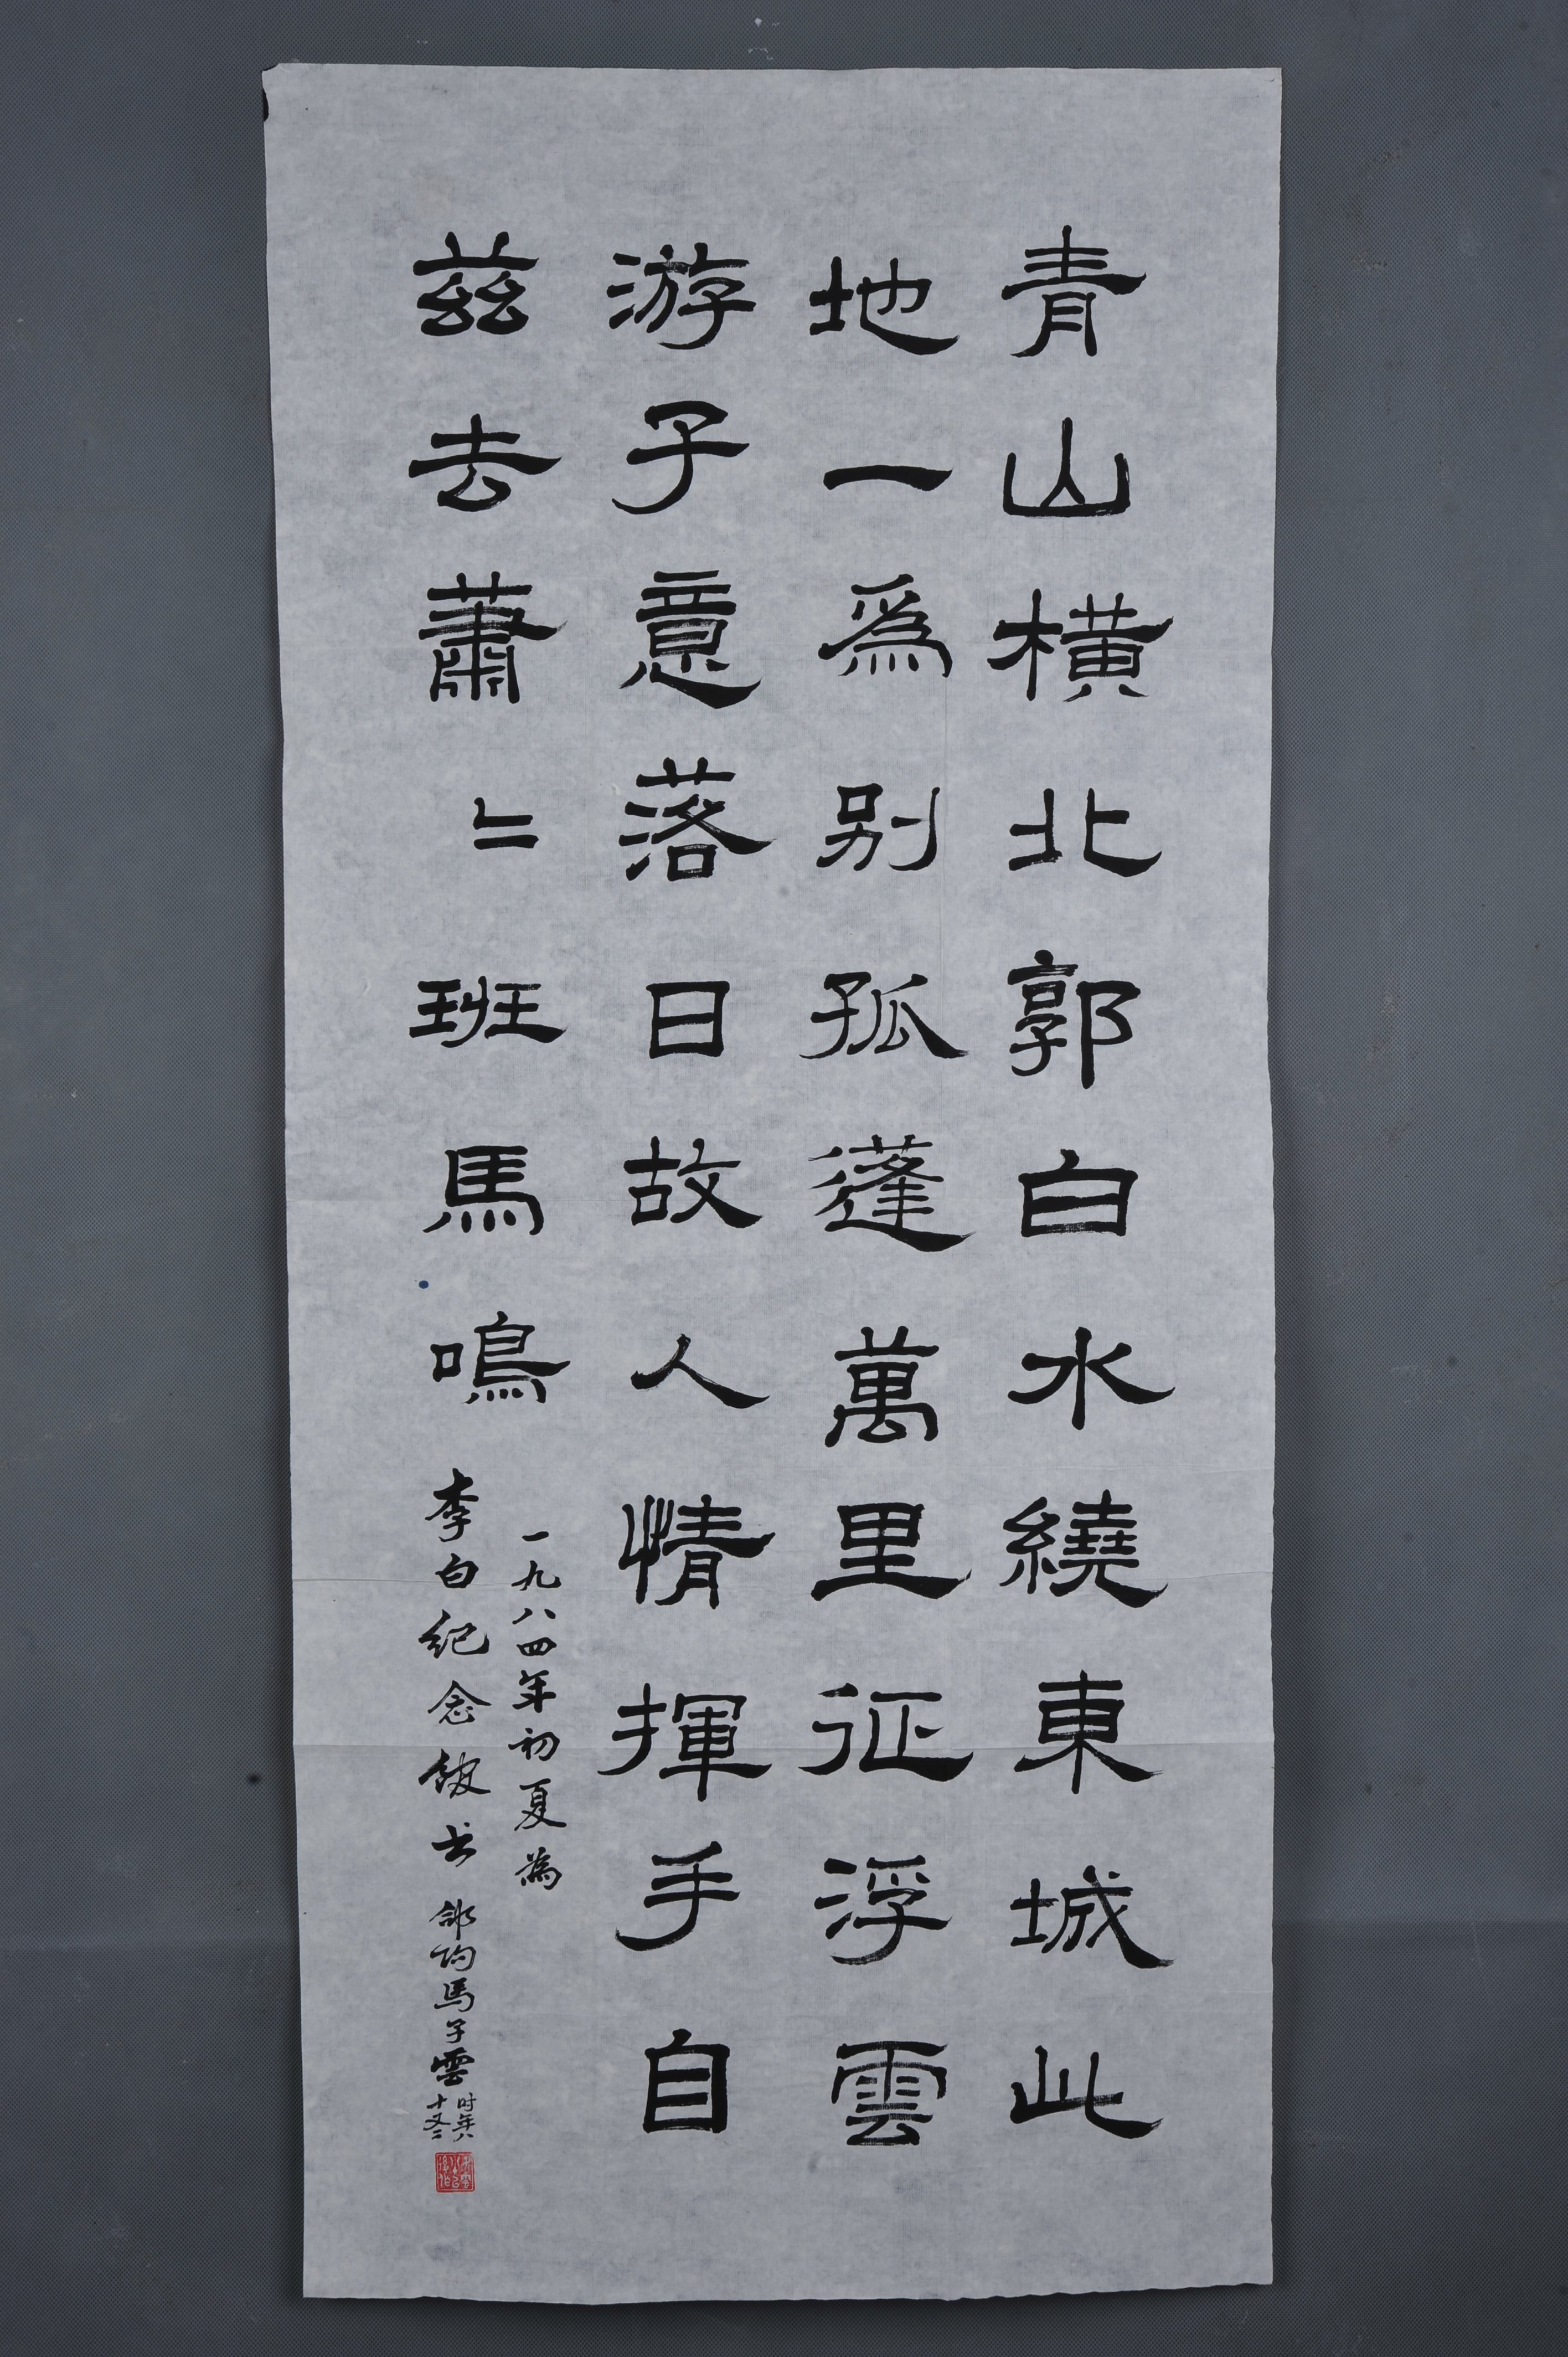 青山橫北郭白水繞東城此
地一為别孤蓬萬里征浮雲
游子意落日故人情揮手自
兹去蕭〻班馬鳴
一九八四年初夏為
李白纪念館书 郃陽馬子雲
时年八
十又二